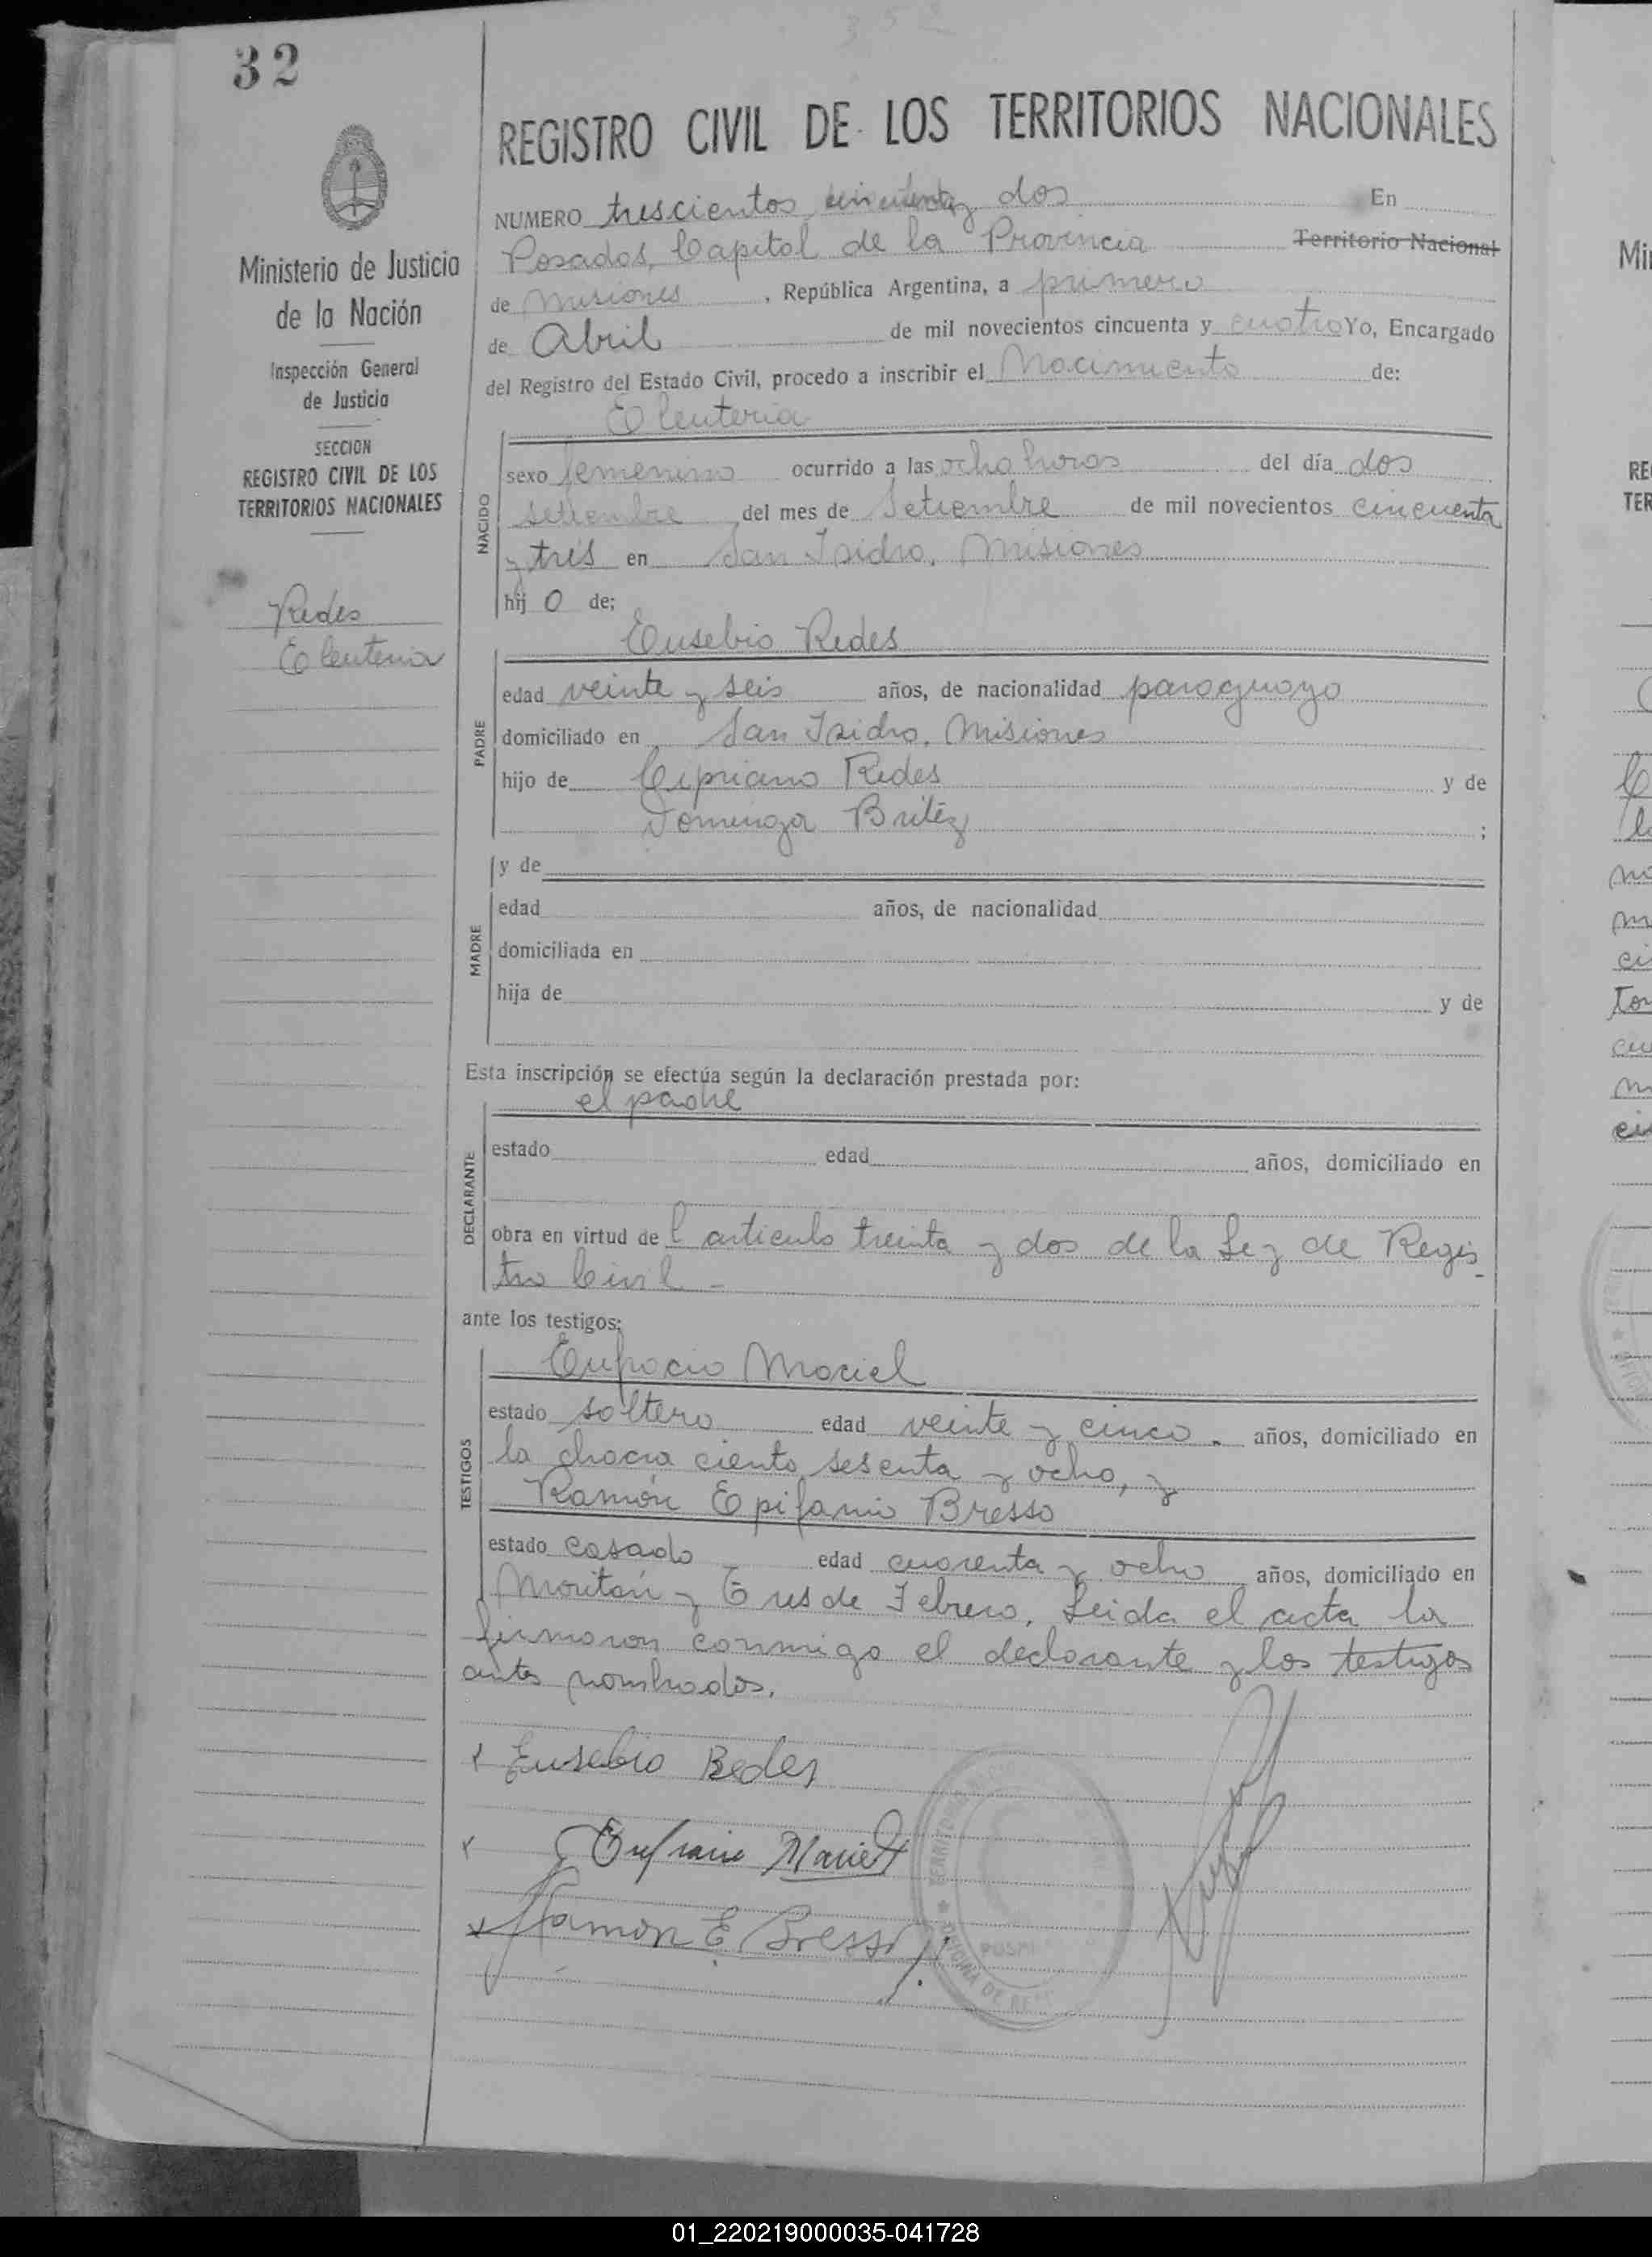 352
32
REGISTRO CIVIL DE LOS TERRITORIOS NACIONALES
NUMERO trescientos cincuenta y dos En
Posadas, Capital de la Provincia Territorio Nacional
de Misiones, República Argentina, a primero
de Abril de mil novecientos cincuenta y cuatro Yo, Encargado
del Registro del Estado Civil, procedo a inscribir el Nacimiento de:
Eleuteria
NACIDO
sexo femenino ocurrido a las ocho horas del día dos
setiembre del mes de Setiembre de mil novecientos cincuenta
y tres en San Isidro, Misiones
hij o de;
Eusebio Redes
PADRE
edad veinte y seis años, de nacionalidad paraguayo
domiciliado en San Isidro, Misiones
hijo de Cipriano Redes y de
Dominga Britez ;
y de
MADRE
edad años, de nacionalidad
domiciliada en
hija de y de
Esta inscripción se efectúa según la declaración prestada por:
el padre
DECLARANTE
estado edad años, domiciliado en
obra en virtud de l articulo treinta y dos de la Ley de Regis
tro Civil -
ante los testigos:
Eufracio Maciel
TESTIGOS
estado soltero edad veinte y cinco. años, domiciliado en
la chacra ciento sesenta y ocho, y
Ramón Epifanio Bresso
estado casado edad cuarenta y ocho años, domiciliado en
y Tres de Febrero. Leida el acta la
firmaron conmigo el declarante y los testigos
antes nombrados.
Eusebio Redes
Eufracio Maciel
Ramon E Bresso
TERRITORIOS
OFICINA DE
Ministerio de Justicia
de la Nación
Inspección General
de Justicia
SECCION
REGISTRO CIVIL DE LOS
TERRITORIOS NACIONALES
Redes
Eleuteria
01_220219000035-041728